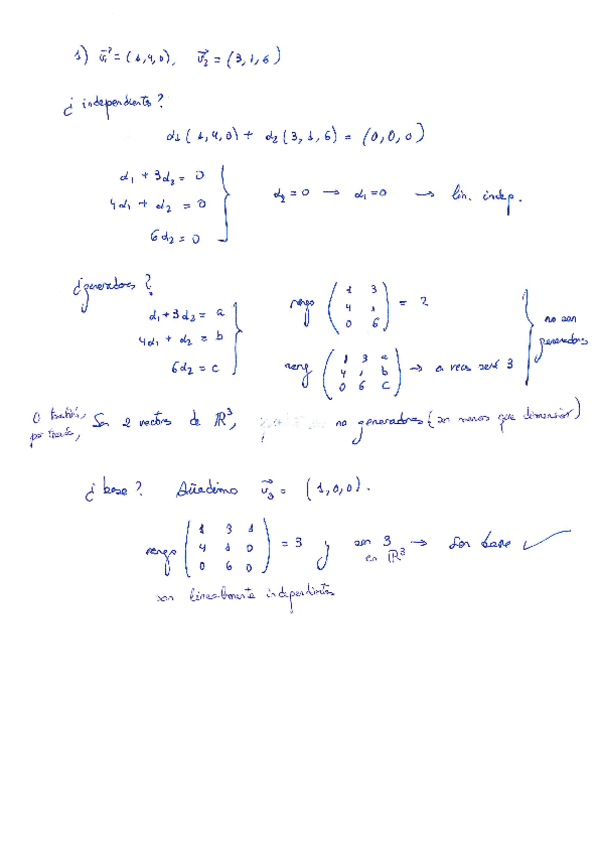 1) v⃗₁ = (1,4,0), v⃗₂ = (3,1,6)
¿independientes?
α₁(1,4,0) + α₂(3,1,6) = (0,0,0)
α₁ + 3α₂ = 0
4α₁ + α₂ = 0
6α₂ = 0
α₂ = 0 → α₁ = 0 → lin. indep.
¿generadores?
α₁ + 3α₂ = a
4α₁ + α₂ = b
6α₂ = c
rango ( 1 3 / 4 1 / 0 6 ) = 2
rang ( 1 3 a / 4 1 b / 0 6 c ) → a veces será 3
no son
generadores
O también,
por teoría,
Son 2 vectores de ℝ³,
no generadores (son menos que dimensión)
¿base? Añadimos v⃗₃ = (1,0,0).
rango ( 1 3 1 / 4 1 0 / 0 6 0 ) = 3 y son 3 en ℝ³ → Son base ✓
son linealmente independientes